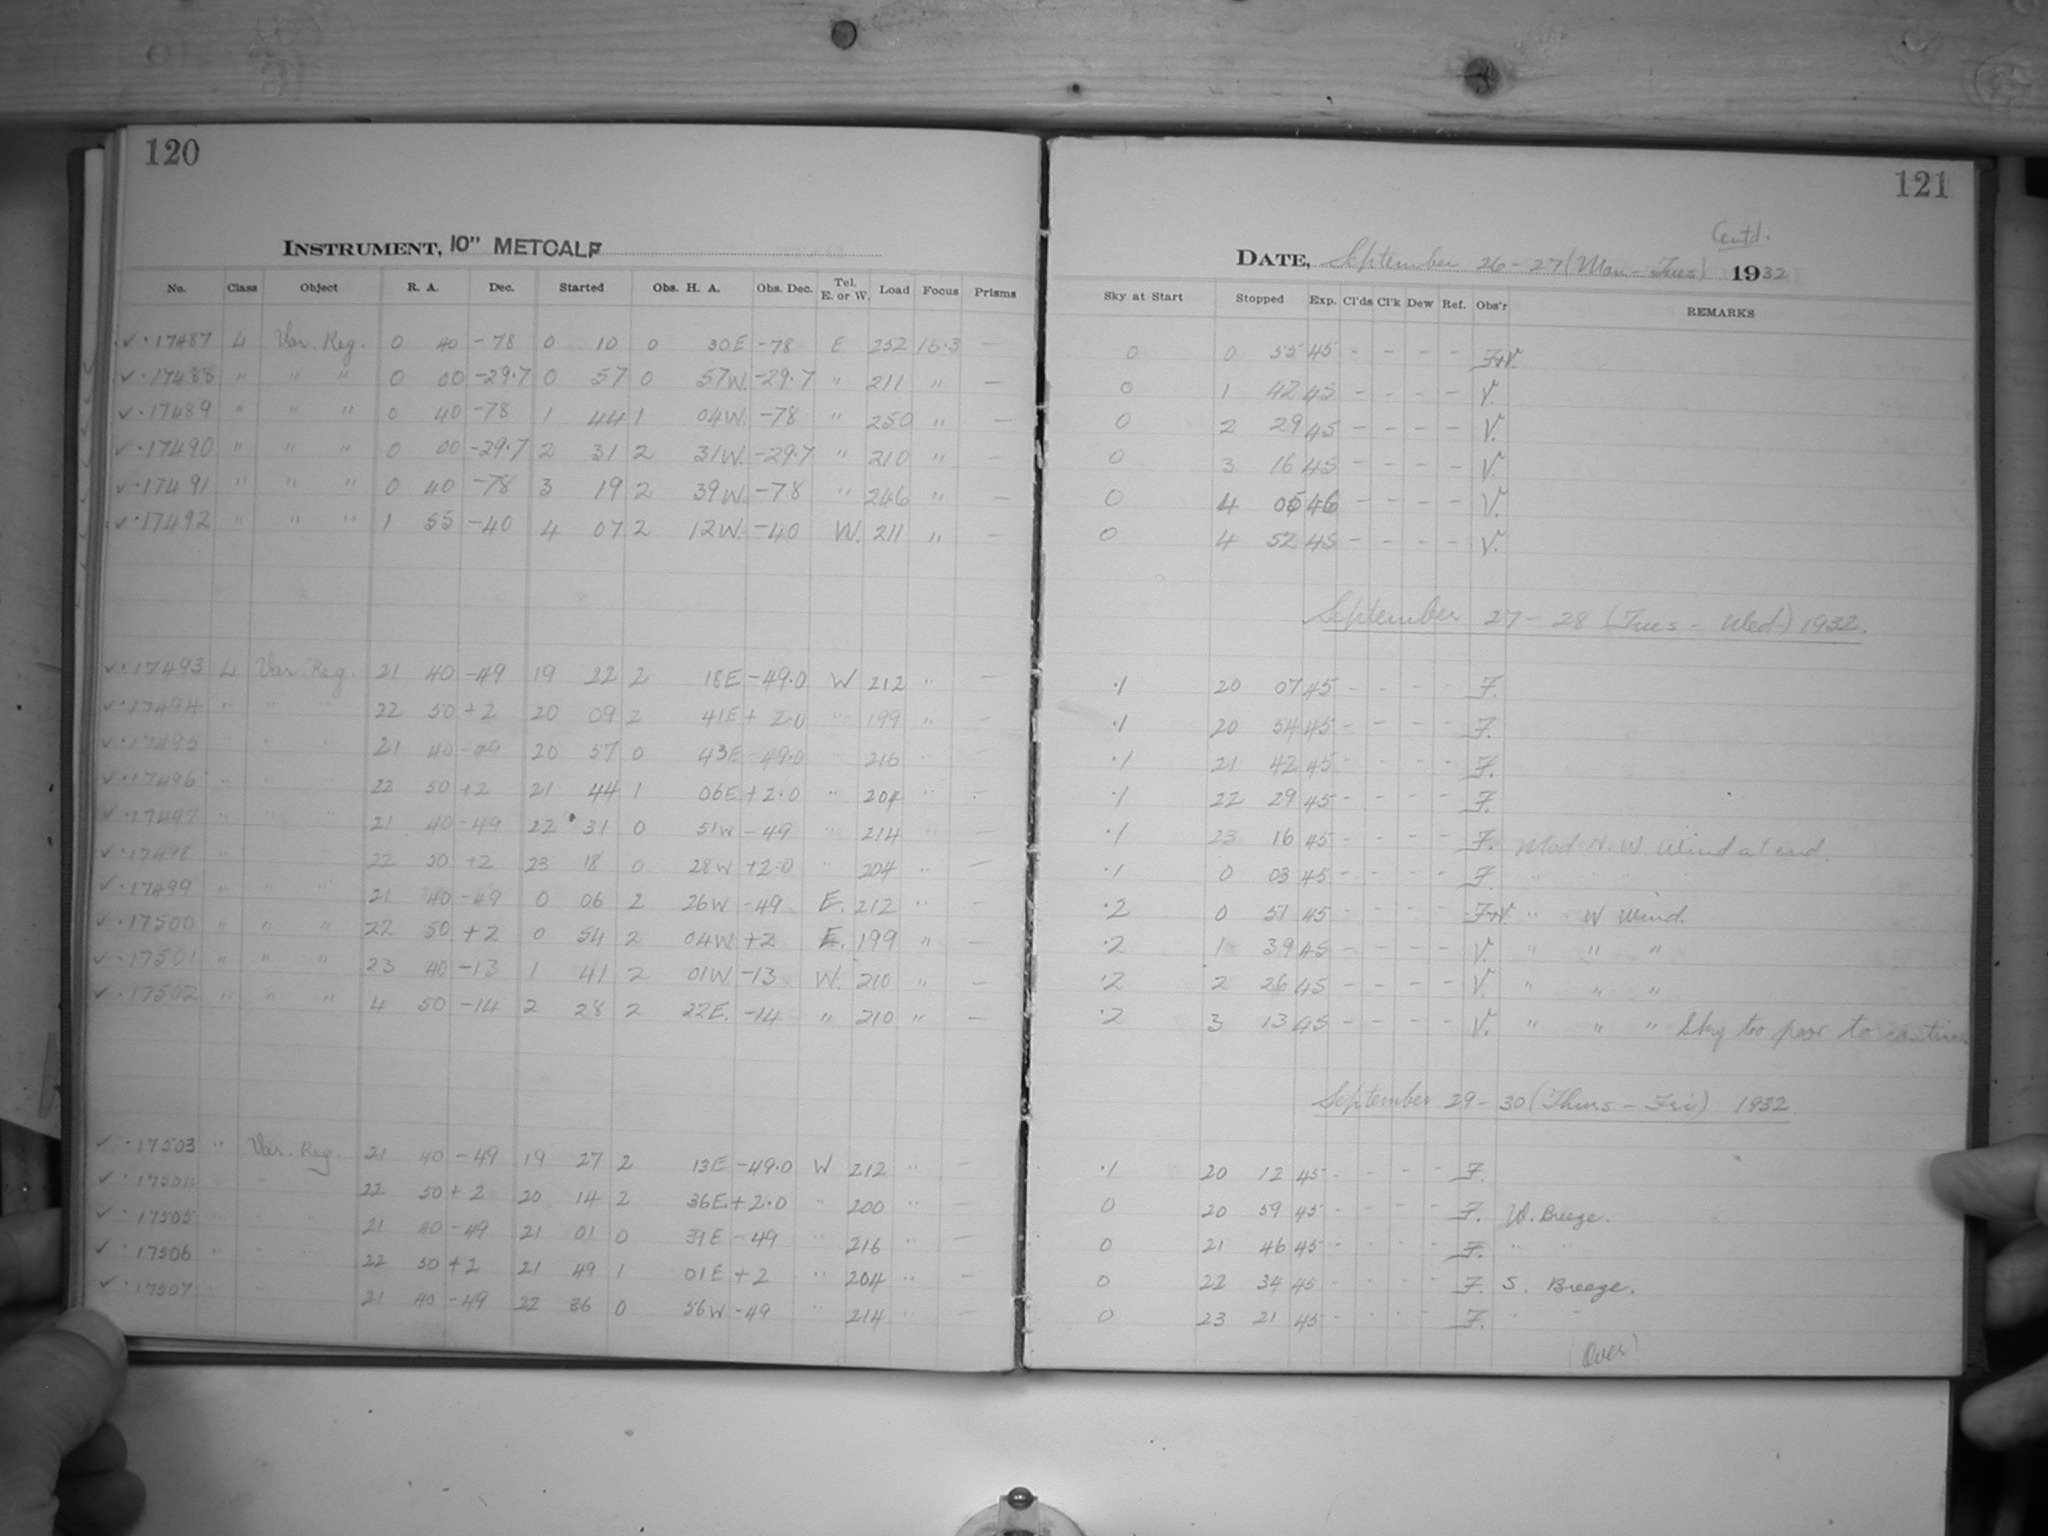 120
INSTRUMENT, 10" METCALF
No. Class Object R. A. Dec. Started Obs. H. A. Obs. Dec. Tel. E. or W. Load Focus Prisms
✓ · 17487 L Var. Reg. 0 40 -78 0 10 0 30E -78 E 252 16.3 —
✓ · 17488 " " " 0 00 -29.7 0 57 0 57W. -29.7 " 211 " —
✓ · 17489 " " " 0 40 -78 1 44 1 04W. -78 " 250 " —
✓ · 17490 " " " 0 00 -29.7 2 31 2 31W. -29.7 " 210 " —
✓ · 17491 " " " 0 40 -78 3 19 2 39W. -78 " 246 " —
✓ · 17492 " " " 1 55 -40 4 07 2 12W. -40 W. 211 " —
✓ · 17493 L Var. Reg. 21 40 -49 19 22 2 18E -49.0 W 212 " —
✓ · 17494 " " " 22 50 +2 20 09 2 41E +2.0 " 199 " —
✓ · 17495 " " " 21 40 -49 20 57 0 43E -49.0 " 216 " —
✓ · 17496 " " " 22 50 +2 21 44 1 06E +2.0 " 204 " —
✓ · 17497 " " " 21 40 -49 22 31 0 51W -49 " 214 " —
✓ · 17498 " 22 50 +2 23 18 0 28W +2.0 " 204 " —
✓ · 17499 " " " 21 40 -49 0 06 2 26W -49 E. 212 " —
✓ · 17500 " " " 22 50 +2 0 54 2 04W +2 E. 199 " —
✓ · 17501 " " " 23 40 -13 1 41 2 01W. -13 W. 210 " —
✓ · 17502 " " " 4 50 -14 2 28 2 22E. -14 " 210 " —
✓ · 17503 " Var. Reg. 21 40 -49 19 27 2 13E -49.0 W 212 " —
✓ · 17504 " " 22 50 +2 20 14 2 36E +2.0 " 200 " —
✓ · 17505 " " 21 40 -49 21 01 0 39E -49 " 216 " —
✓ · 17506 " " " 22 50 +2 21 49 1 01E +2 " 204 " —
✓ · 17507 " " 21 40 -49 22 36 0 56W -49 " 214 " —
121
Contd.
DATE, September 26-27 (Mon - Tues) 1932
Sky at Start Stopped Exp. Cl'ds Cl'k Dew Ref. Obs'r REMARKS
0 0 55 45 - - - - F+V.
0 1 42 45 - - - - V.
0 2 29 45 - - - - V.
0 3 16 45 - - - - V.
0 4 05 46 - - - - V.
0 4 52 45 - - - - V.
September 27-28 (Tues - Wed) 1932.
.1 20 07 45 - - - - F.
.1 20 54 45 - - - - F.
.1 21 42 45 - - - - F.
.1 22 29 45 - - - - F.
.1 23 16 45 - - - - F. Mod N. W. Wind at end.
.1 0 03 45 - - - - F. "
.2 0 51 45 - - - - F+V. " W Wind.
.2 1 39 45 - - - - V. " " "
.2 2 26 45 - - - - V. " " "
.2 3 13 45 - - - - V. " " " Sky too poor to continue
September 29-30 (Thurs - Fri) 1932
.1 20 12 45 - - - - F.
0 20 59 45 - - - - F. W. Breeze.
0 21 46 45 - - - - F. " "
0 22 34 45 - - - - F. S. Breeze.
0 23 21 45 - - - - F. " "
(Over)